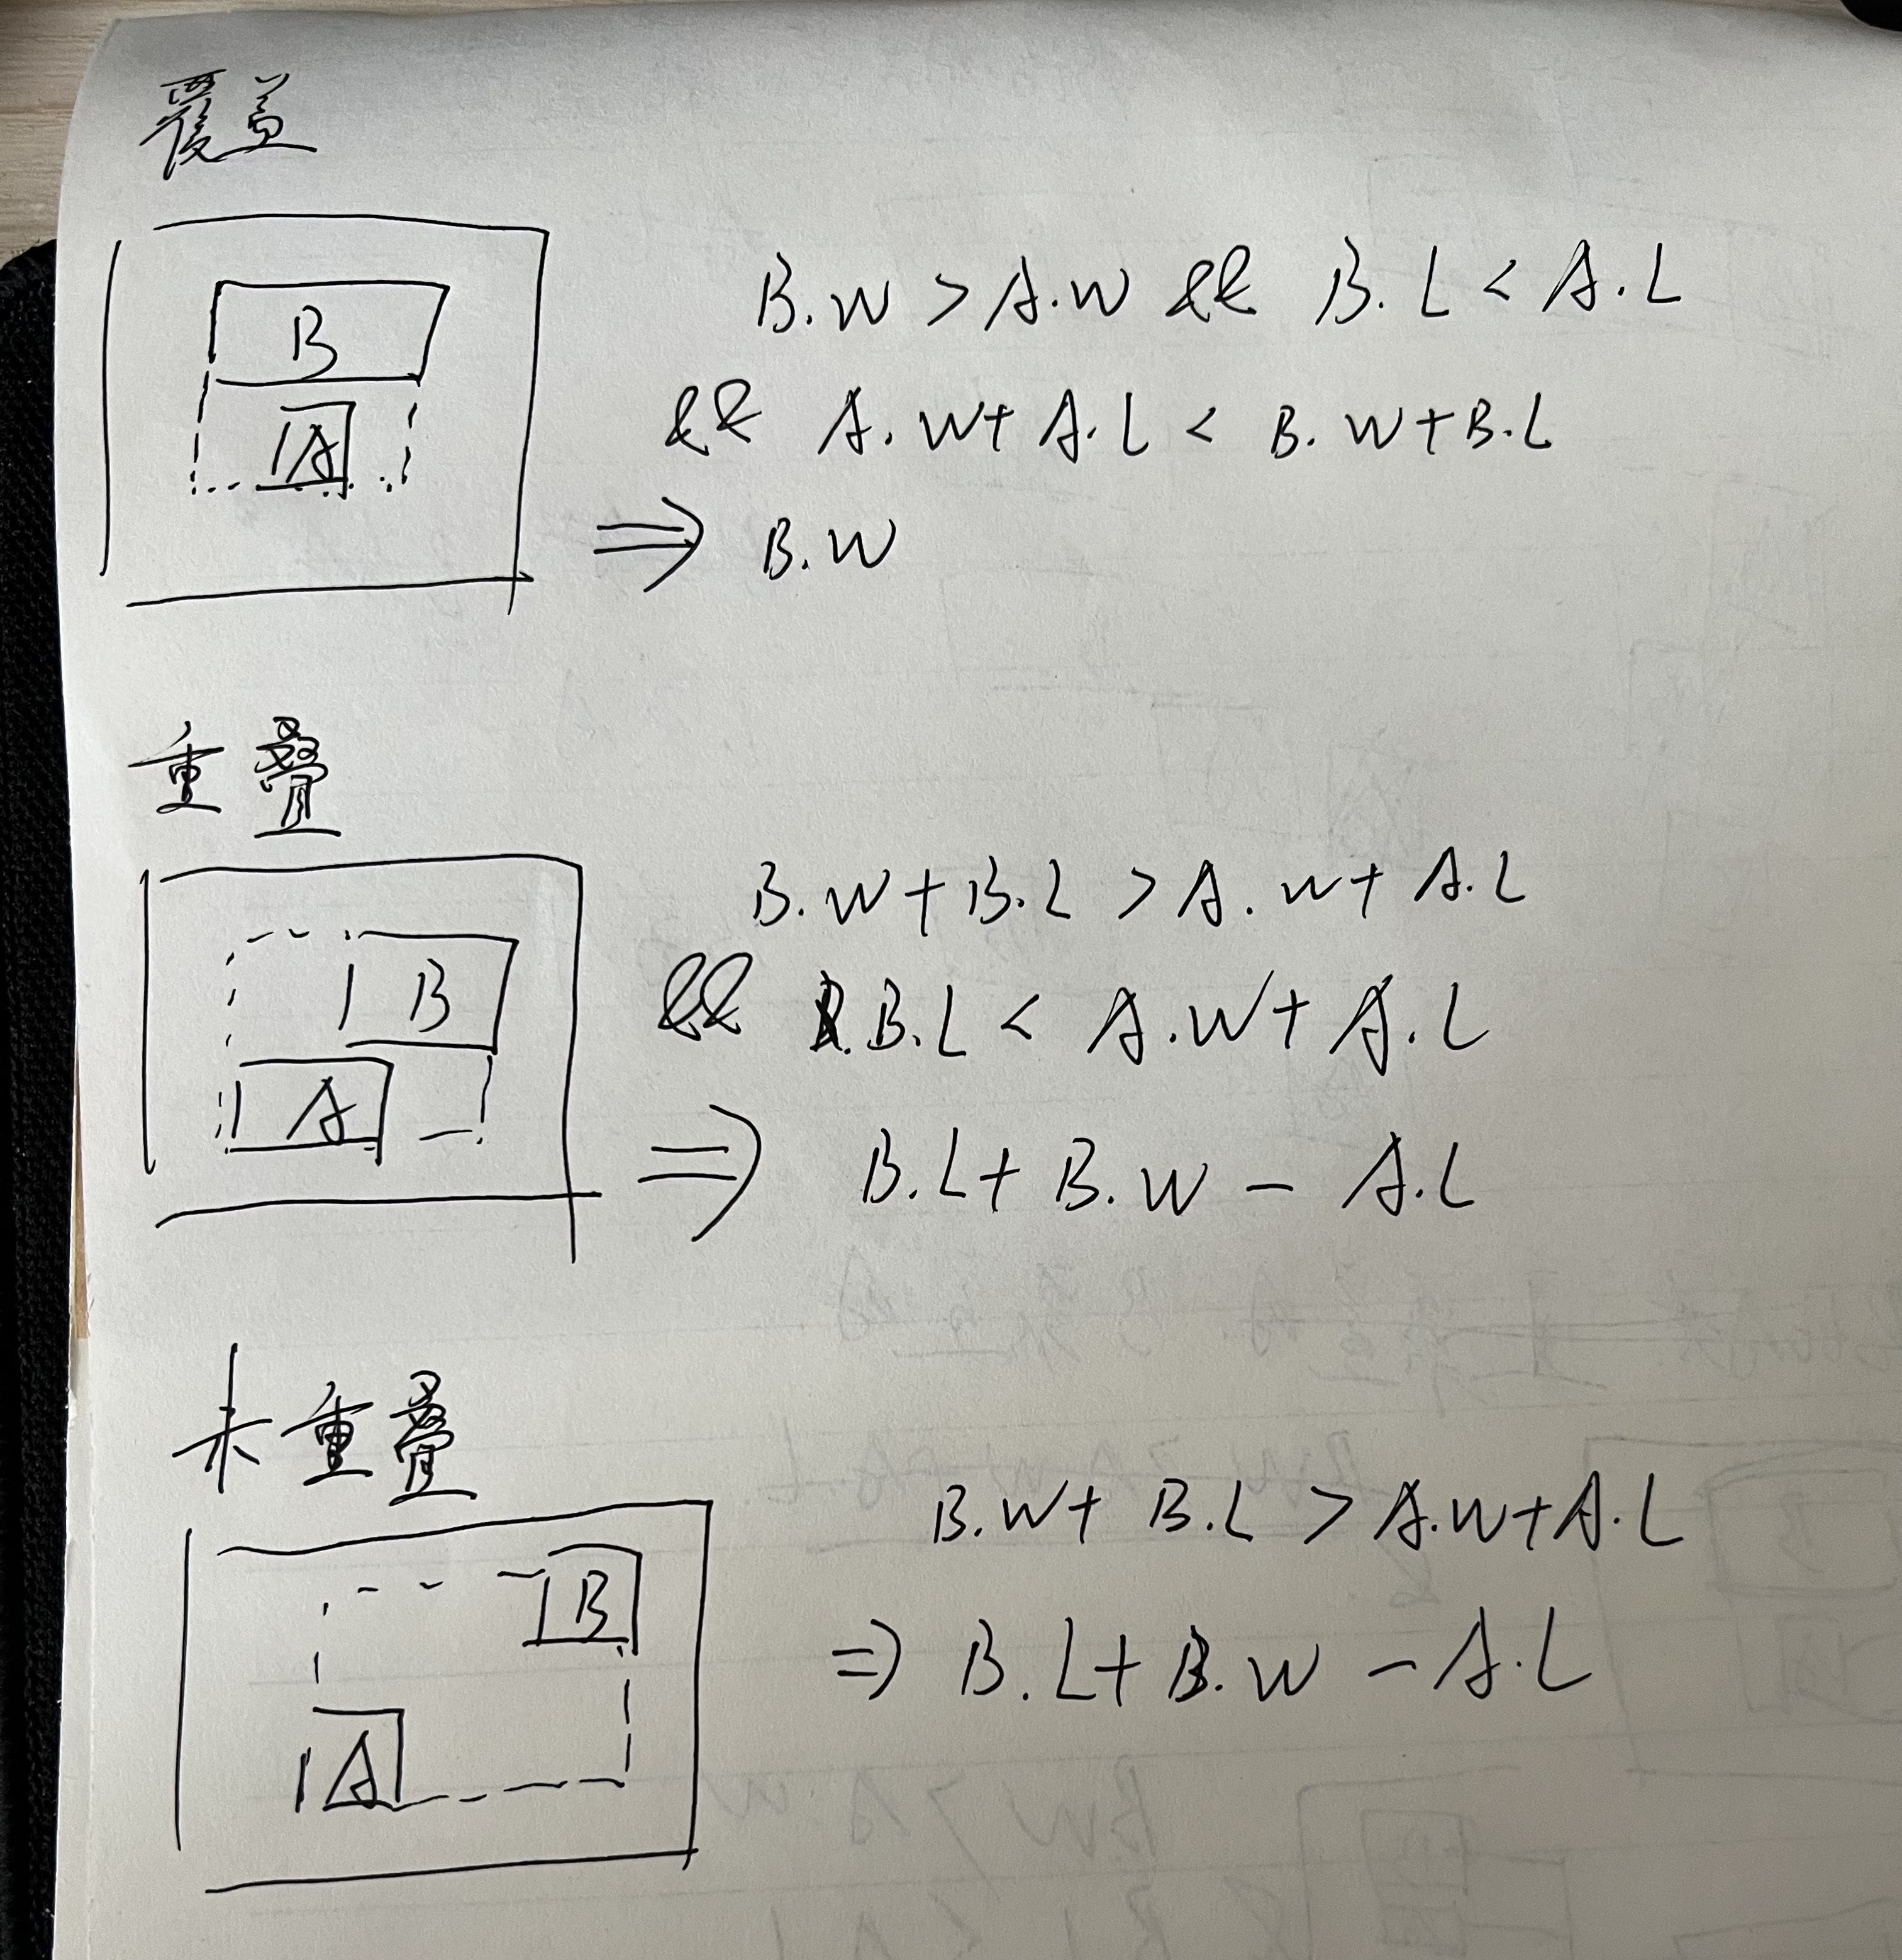 覆盖
B
A
B.W > A.W && B.L < A.L
&& A.W + A.L < B.W + B.L
⇒ B.W
重叠
B
A
B.W + B.L > A.W + A.L
&& B.L < A.W + A.L
⇒ B.L + B.W - A.L
未重叠
B
A
B.W + B.L > A.W + A.L
⇒ B.L + B.W - A.L